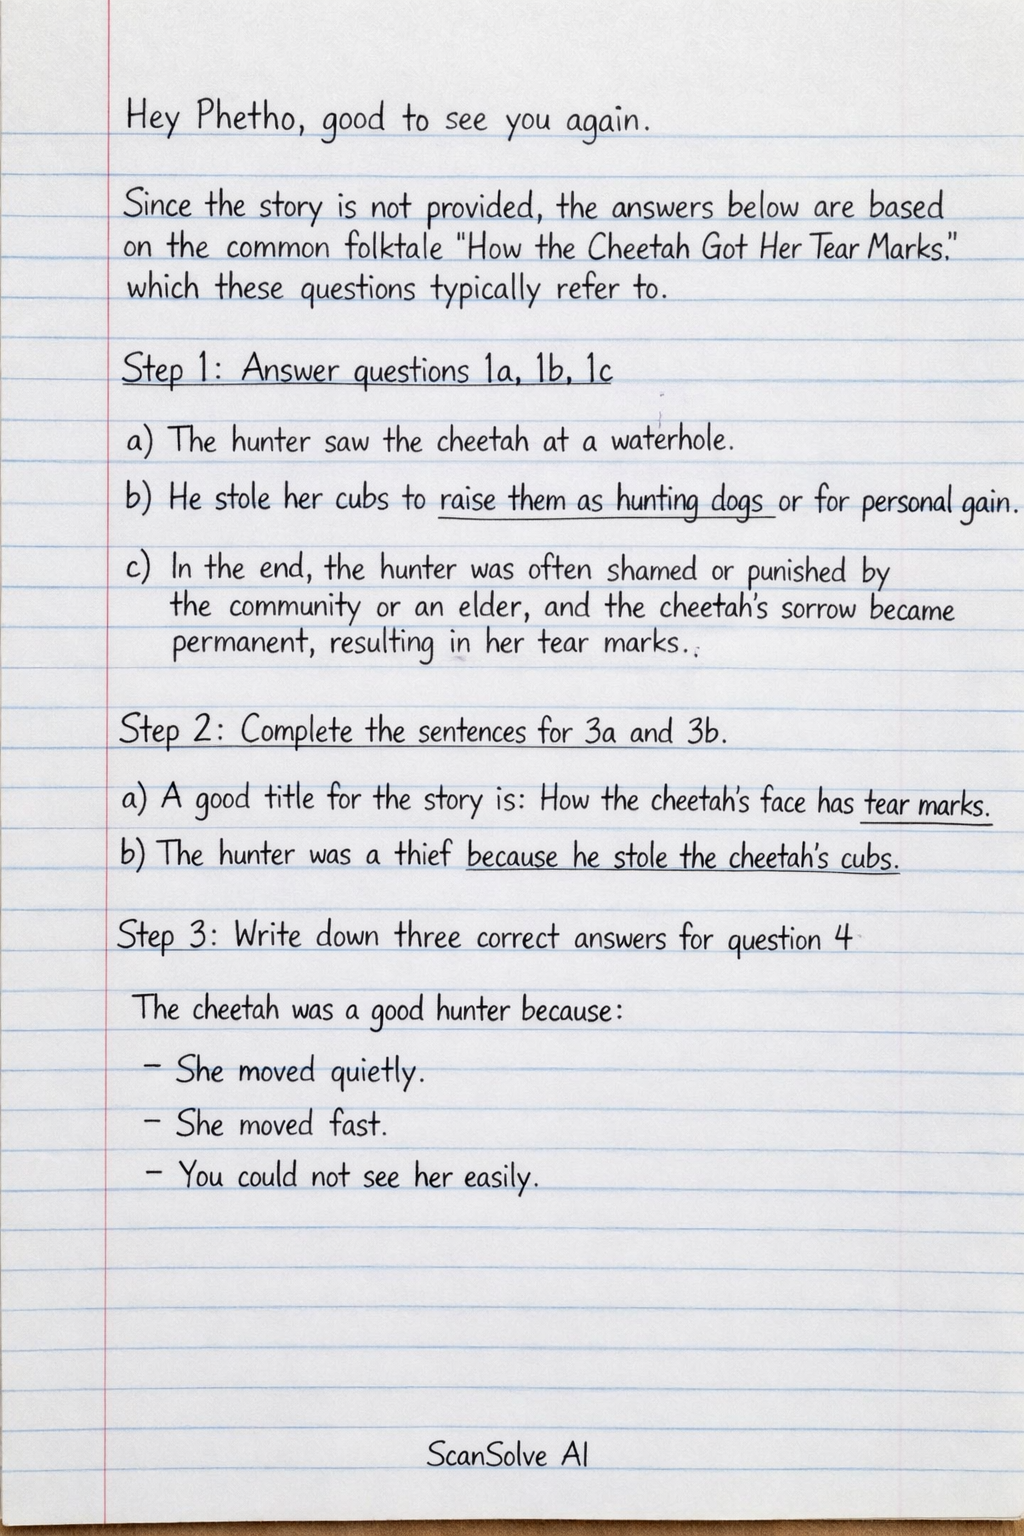 Hey Phetho, good to see you again.
Since the story is not provided, the answers below are based
on the common folktale "How the Cheetah Got Her Tear Marks."
which these questions typically refer to.
Step 1: Answer questions 1a, 1b, 1c
a) The hunter saw the cheetah at a waterhole.
b) He stole her cubs to raise them as hunting dogs or for personal gain.
c) In the end, the hunter was often shamed or punished by
the community or an elder, and the cheetah's sorrow became
permanent, resulting in her tear marks..
Step 2: Complete the sentences for 3a and 3b.
a) A good title for the story is: How the cheetah's face has tear marks.
b) The hunter was a thief because he stole the cheetah's cubs.
Step 3: Write down three correct answers for question 4
The cheetah was a good hunter because:
– She moved quietly.
– She moved fast.
– You could not see her easily.
ScanSolve AI